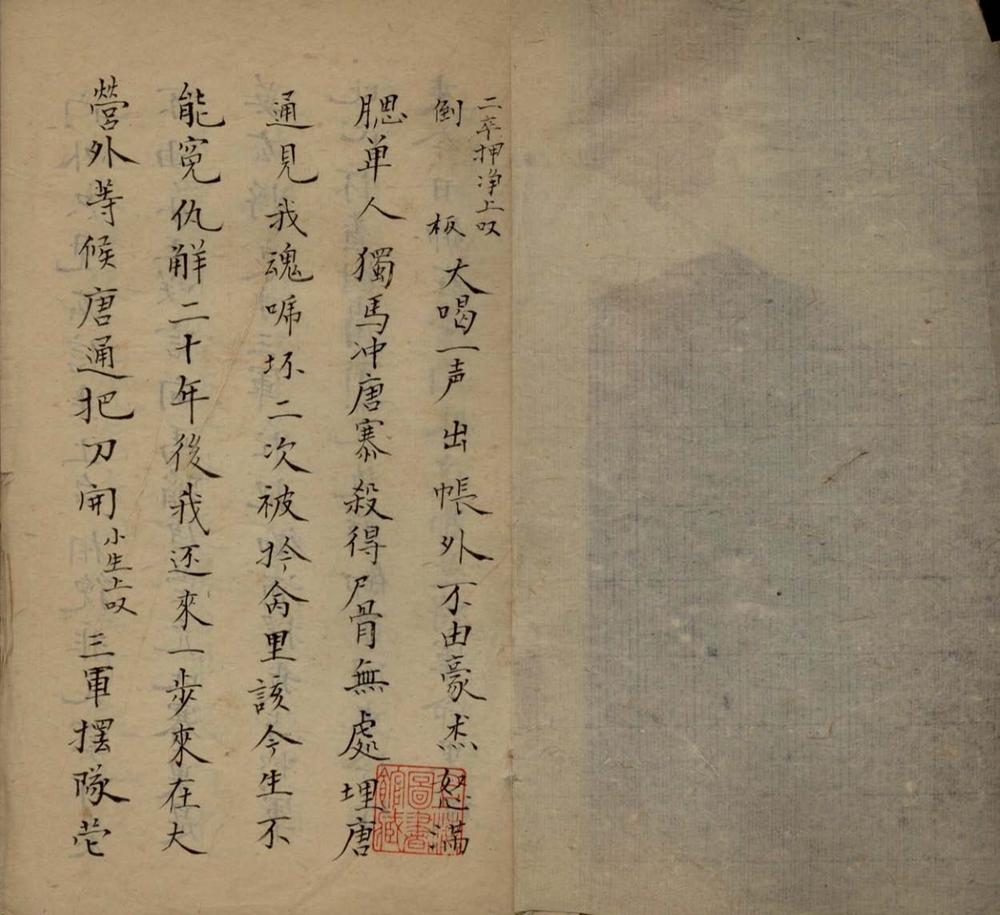 二卒押净上叹
倒板 大喝一声出帳外不由豪杰怒滿
腮单人獨馬冲唐寨殺得尸骨無處埋唐
通見我魂啼坯二次被拎禽里該今生不
能寃仇解二十年後我还來一步來在大
營外等候唐通把刀開 小生上叹 三軍擺隊
圖書館藏